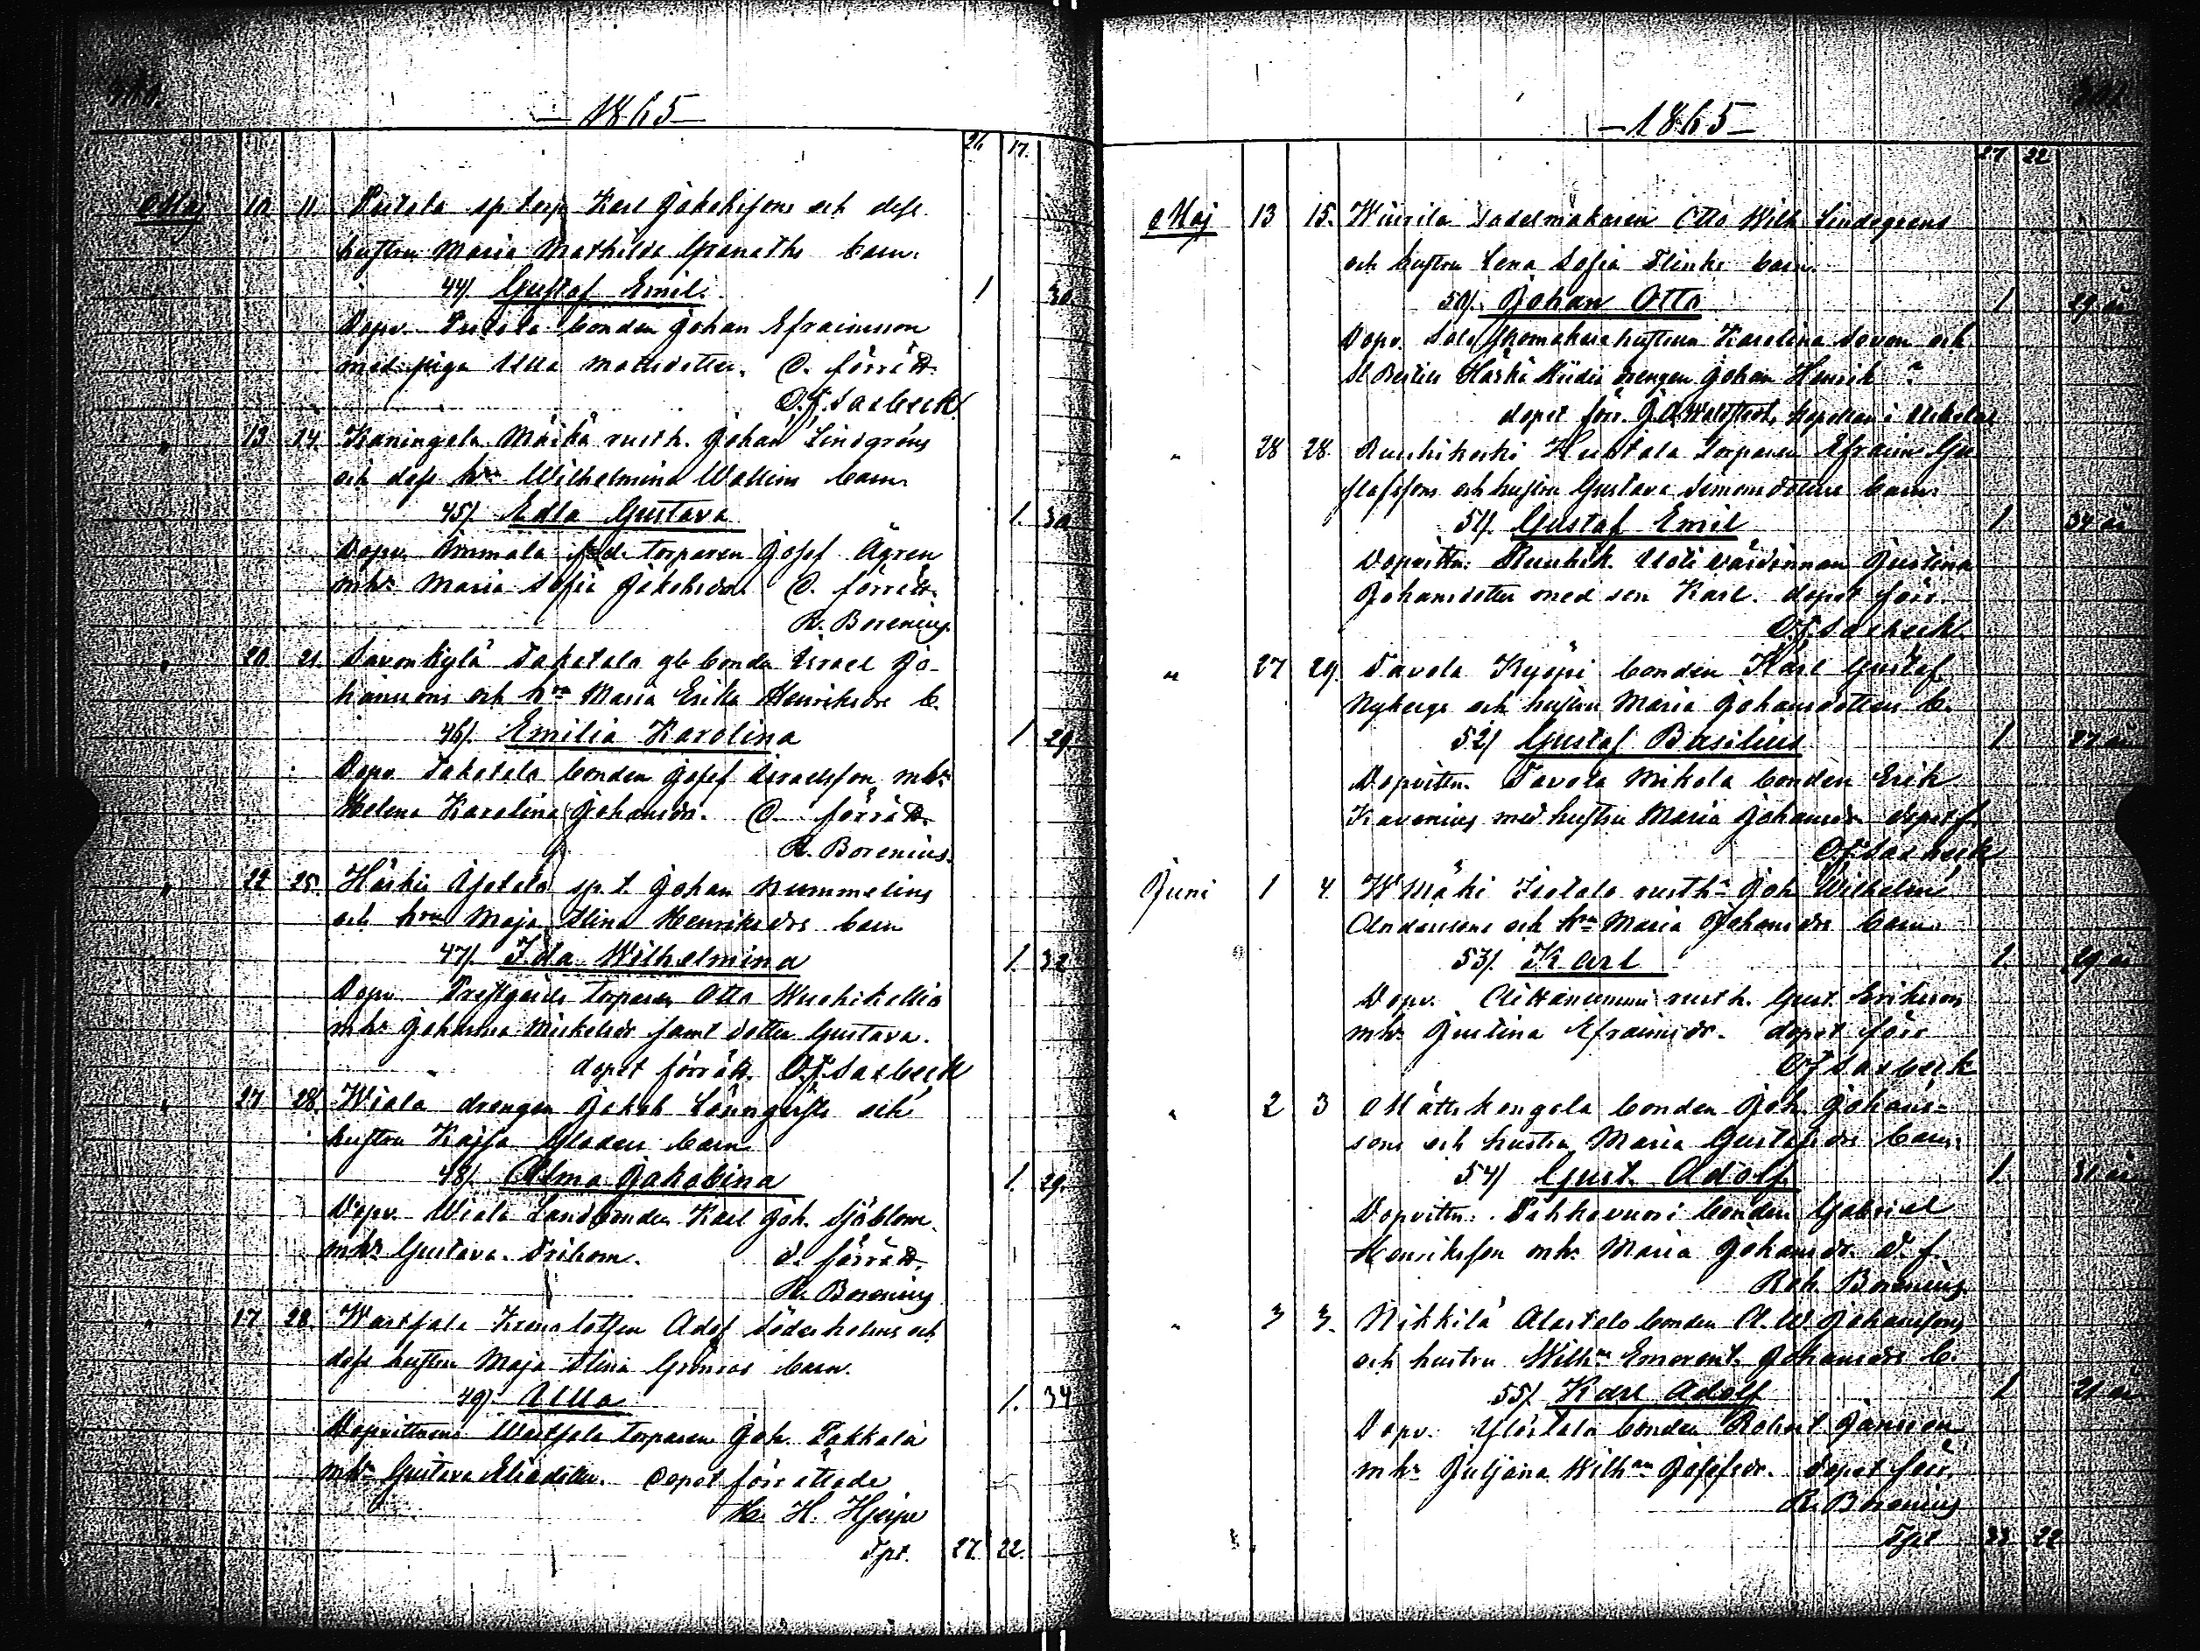 1865
26. 17.
Maj 10 11. sp torp Karl Jakobssons och dess
hustru Maria Mathilda Granaths barn.
44). Gustaf Emil. 1 30
Dopv. bonden Johan Efraimsson
med piga Ulla Matsdotter. D. förrätt.
O. F. Saxbeck
" 13 14. Kaningola Mäikä rusth. Johan Lindgréns
och dess hru Wilhelmina Wallins barn
45). Edla Gustava 1. 30
Dopv. torparen Josef Ågren
mhr Maria Sofia Jakobsdr. D. förrätt.
R. Borenius
" 20 21. Savonkylä Takatalo bonden Israel Jo-
hanssons och hru Maria Erika Henriksdrs b.
46). Emilia Karolina 1 29
Dopv. Takatalo bonden Josef Israelsson mhr
Helena Karolina Johansdr. D. förrätt.
R. Borenius.
" 22 25. sp. t. Johan Nummelins
och hru Maja Stina Henriksdrs barn
47). Ida Wilhelmina 1. 32
Dopv. Prestgårds torparen Otto
mhr Johanna Mickelsdr samt dotter Gustava.
dopet förrätt. O.F. Saxbeck
" 27 28. Wiala drengen Jakob Lönnqvists och
hustru Kajsa barn
48). Alma Jakobina 1. 29.
Dopv. Wiala Landbonden Karl Joh. Sjöblom
mhr Gustava d. förrätt.
R. Borenius
" 17 28. Wartsala Kronolotsen Adof Söderholms och
dess hustru Maja Stina Grönroos barn.
49). Ulla 1. 34
Dopvittnens Wartsala torparen Joh. Pakkala
mhr Gustava dopet förrättade
K. H. Hjerpe
Tpt. 27 22.
1865
27 22
Maj 13 15. Sadelmakaren Otto Wilh. Lindegrens
och hustru Lena Sofia Flinks barn.
50). Johan Otto 1 29 år
Dopv. Salo Skomakarehustrun Karolina Savon och
St Bertils Häskä drengen Johan Henrik ?
dopet förr. Kapellan i Uskela
" 28 28. Ruskikoski Huhtala Torparen Efraim Gu
stafssons och hustru Gustava Simonsdotters barn.
51). Gustaf Emil 1 34 år
Dopvittn. Uoti värdinnan Justina
Johansdotter med son Karl. dopet förr.
O.F. Saxbeck
" 27 29. Tavola Kyöpi bonden Karl Gustaf
Nybergs och hustru Maria Johansdotters b.
52) Gustaf Basilius 1 27 år
Dopvittn. Tavola Mikola bonden Erik
Kavenius med hustru Maria Johansdr dopet f.
O.F. Saxbeck
Juni 1 4. Mäki Isotalo rusthr Joh Wilhelm
Anderssons och hru Maria Johansdrs barn.
53). Karl 1 29 år
Dopv. rusth. Gust. Eriksson
mhr Justina Efraimsdr. dopet förr
O F Saxbeck
" 2 3 bonden Joh. Johans-
sons och hustru Maria Gustafsdrs barn.
54) Gust. Adolf. 1. 31 år
Dopvittn. Pahkavuori bonden Gabriel
Henriksson mhr Maria Johansdr. D. f.
Rob. Borenius
" 3 3. Nikkilä Alastalo bonden A. W. Johanssons
och hustru Wilhna Johansdrs b.
55). Karl Adolf 1 21 år
Dopv. Ylöstalo bonden Robert Jansson
mhr Juljana Wilhna Josefsdr. dopet förr.
R. Borenius
Tpt 33 22